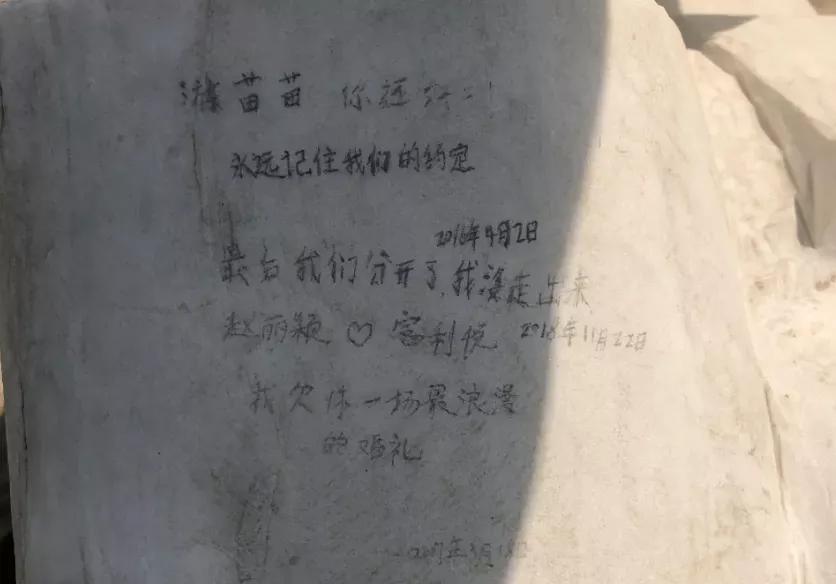 苗苗 你还好
永远记住我们的约定
2016年9月2日
最后我们分开了,我没走出来
赵丽颖 ♡ 富利悦 2018年11月22日
我欠你一场最浪漫
的婚礼